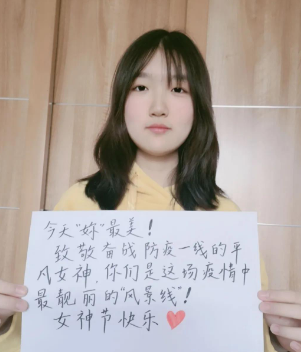 今天"妳"最美！
致敬奋战防疫一线的平
凡女神，你们是这场疫情中
最靓丽的"风景线"！
女神节快乐